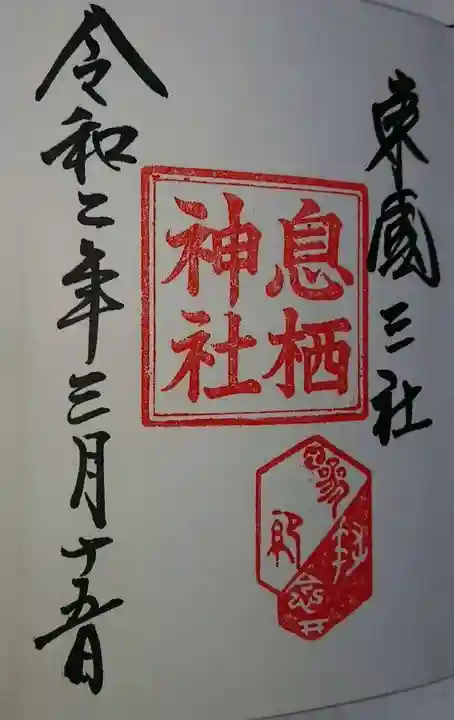 東國三社
息栖
神社
令和二年三月十五日